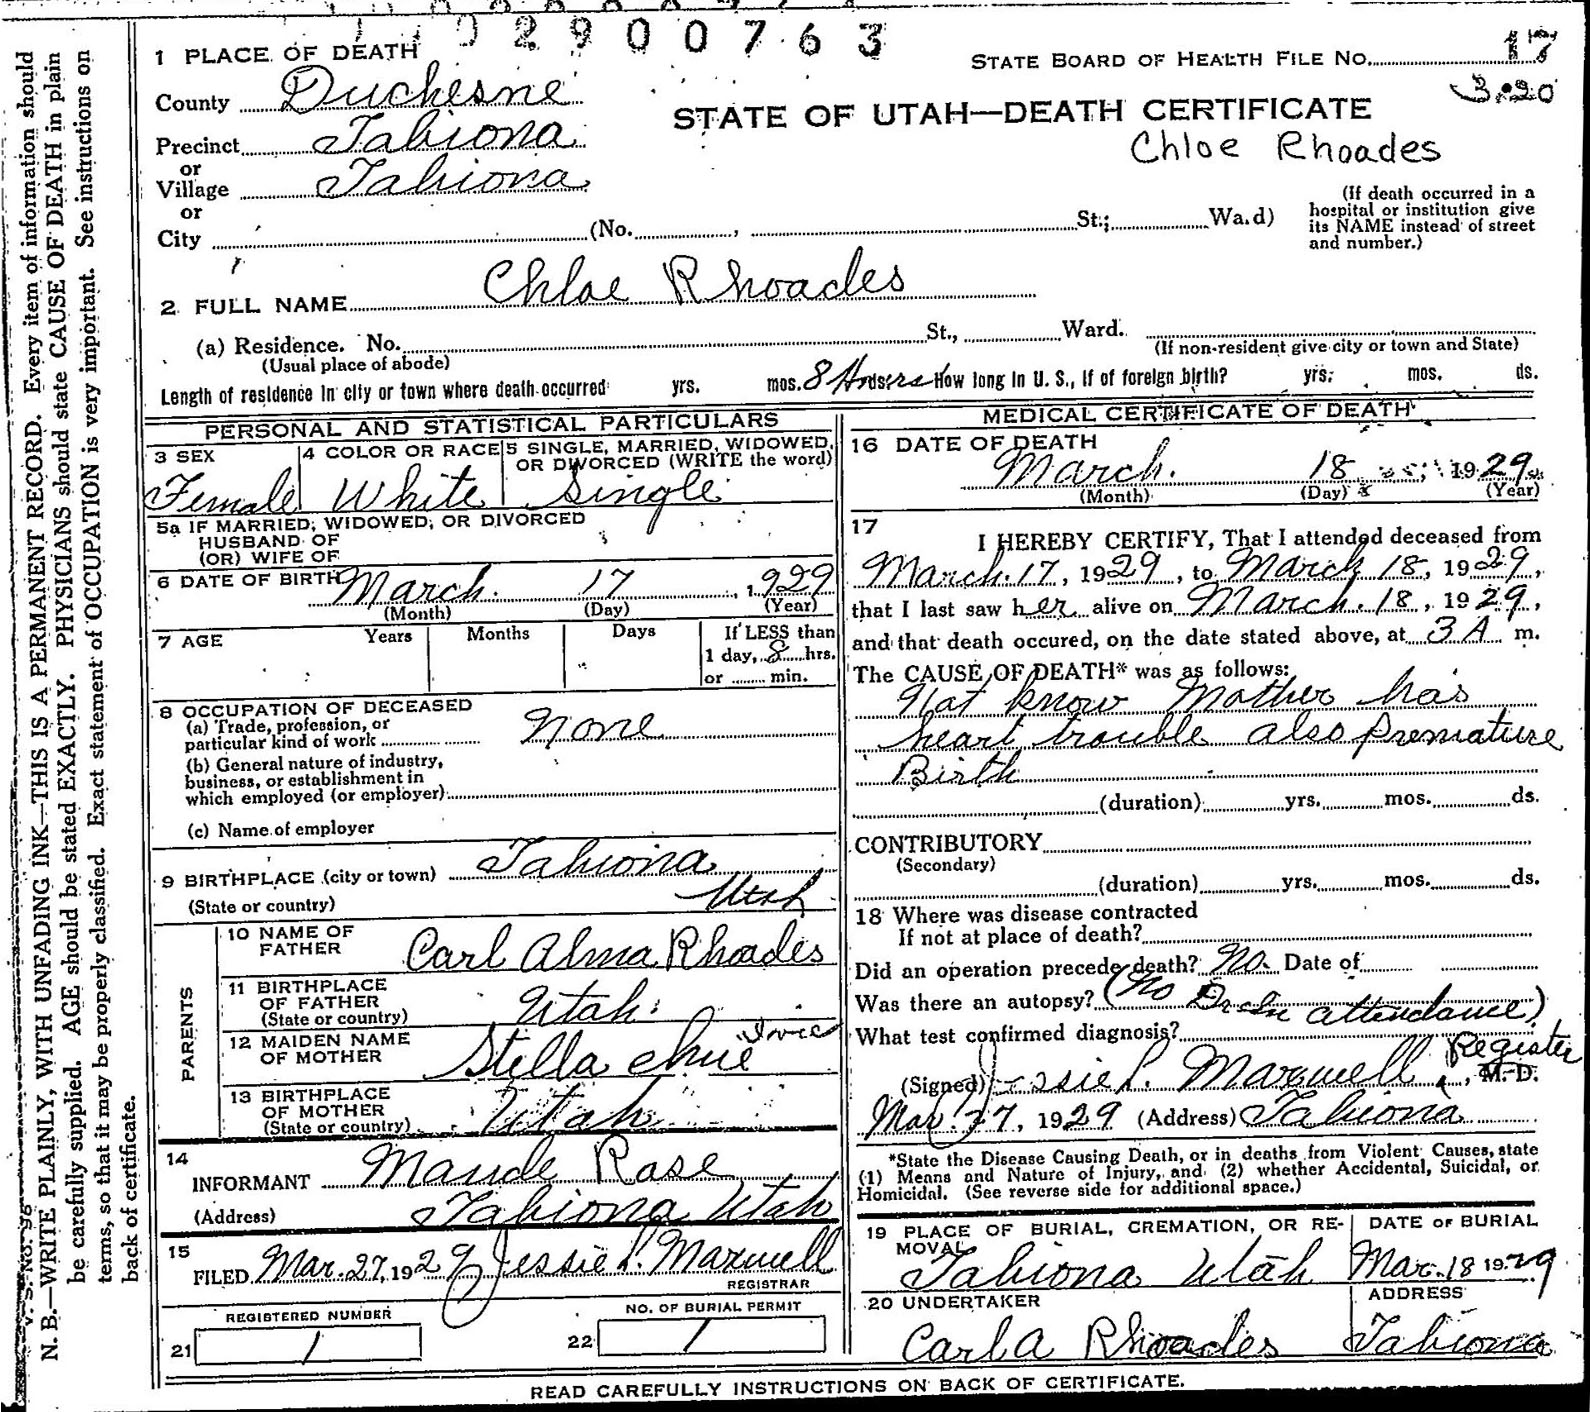 2900763
1 PLACE OF DEATH
STATE BOARD OF HEALTH FILE NO. 17
3.20
County Duchesne
STATE OF UTAH—DEATH CERTIFICATE
Precinct Tabiona
Chloe Rhoades
or
Village Tabiona
or
City (No. , St.; Wa.d)
(If death occurred in a
hospital or institution give
its NAME instead of street
and number.)
2 FULL NAME Chloe Rhoades
(a) Residence. No. St., Ward.
(Usual place of abode)
(If non-resident give city or town and State)
Length of residence in city or town where death occurred yrs. mos. 8 Hours How long in U. S., if of foreign birth? yrs. mos. ds.
PERSONAL AND STATISTICAL PARTICULARS
3 SEX
Female
4 COLOR OR RACE
White
5 SINGLE, MARRIED, WIDOWED,
OR DIVORCED (WRITE the word)
Single
5a IF MARRIED, WIDOWED, OR DIVORCED
HUSBAND OF
(OR) WIFE OF
6 DATE OF BIRTH March 17, 1929
(Month) (Day) (Year)
7 AGE Years Months Days
If LESS than
1 day, 8 hrs.
or min.
8 OCCUPATION OF DECEASED
(a) Trade, profession, or
particular kind of work None
(b) General nature of industry,
business, or establishment in
which employed (or employer)
(c) Name of employer
9 BIRTHPLACE (city or town) Tabiona
(State or country) Utah
PARENTS
10 NAME OF
FATHER Carl Alma Rhoades
11 BIRTHPLACE
OF FATHER
(State or country) Utah
12 MAIDEN NAME
OF MOTHER Stella
13 BIRTHPLACE
OF MOTHER
(State or country) Utah
14
INFORMANT Maude Rose
(Address) Tabiona Utah
15
FILED Mar. 27, 1929 Jessie L. Maxwell
REGISTRAR
REGISTERED NUMBER
21 1
NO. OF BURIAL PERMIT
22 1
MEDICAL CERTIFICATE OF DEATH
16 DATE OF DEATH
March 18 1929
(Month) (Day) (Year)
17
I HEREBY CERTIFY, That I attended deceased from
March 17, 1929, to March 18, 1929,
that I last saw her alive on March 18, 1929,
and that death occured, on the date stated above, at 3 A m.
The CAUSE OF DEATH* was as follows:
Not know Mother has
heart trouble also premature
Birth
(duration) yrs. mos. ds.
CONTRIBUTORY
(Secondary)
(duration) yrs. mos. ds.
18 Where was disease contracted
If not at place of death?
Did an operation precede death? No. Date of
Was there an autopsy? (No Dr in attendance)
What test confirmed diagnosis?
(Signed) Jessie L. Maxwell, Register M. D.
Mar 27, 1929 (Address) Tabiona
*State the Disease Causing Death, or in deaths from Violent Causes, state
(1) Means and Nature of Injury, and (2) whether Accidental, Suicidal, or
Homicidal. (See reverse side for additional space.)
19 PLACE OF BURIAL, CREMATION, OR RE-
MOVAL
Tabiona Utah
DATE OF BURIAL
Mar. 18 1929
20 UNDERTAKER
Carl A Rhoades
ADDRESS
Tabiona
READ CAREFULLY INSTRUCTIONS ON BACK OF CERTIFICATE.
V. S. No.
N. B.—WRITE PLAINLY, WITH UNFADING INK—THIS IS A PERMANENT RECORD. Every item of information should
be carefully supplied. AGE should be stated EXACTLY. PHYSICIANS should state CAUSE OF DEATH in plain
terms, so that it may be properly classified. Exact statement of OCCUPATION is very important. See instructions on
back of certificate.